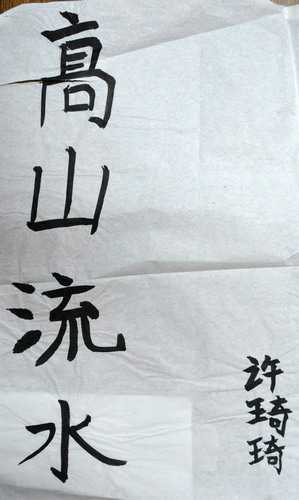 髙山流水
许琦琦